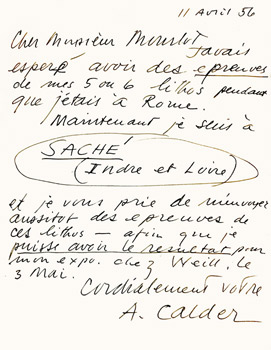 11 Avril 56
Cher Monsieur Mourlot
J'avais
esperé avoir des epreuves
de mes 5 ou 6 lithos pendant
que j'étais à Rome.
Maintenant je suis à
SACHÉ
(Indre et Loire)
et je vous prie de m'envoyer
aussitot des epreuves de
ces lithos — afin que je
puisse avoir le resultat pour
mon expo. chez Weill, le
3 Mai.
Cordialement votre
A. Calder